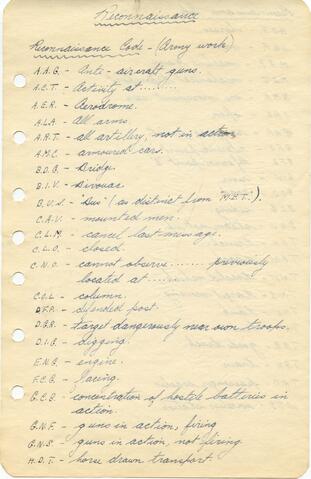 Reconnaissance
Reconnaissance Code - (Army work)
A.A.G. - Anti-aircraft guns.
A.C.T. - Activity at .........
A.E.R. - Aerodrome.
A.L.A. - All arms.
A.R.T. - all artillery, not in action
A.M.C. - armoured cars.
B.D.G. - Bridge.
B.I.V. - Bivouac
B.U.S. - "Bus" (as distinct from "M.E.T.").
C.A.V. - mounted men.
C.L.M. - cancel last message.
C.L.O. - closed.
C.N.O. - cannot observe ........ previously
located at ......
C.O.L. - column.
D.F.P. - defended post.
D.G.R. - target dangerously near own troops.
D.I.G. - digging.
E.N.G. - engine.
F.C.G. - facing.
G.C.B. - concentration of hostile batteries in
action.
G.N.F. - guns in action, firing
G.N.S. - guns in action, not firing
H.D.T. - horse drawn transport.